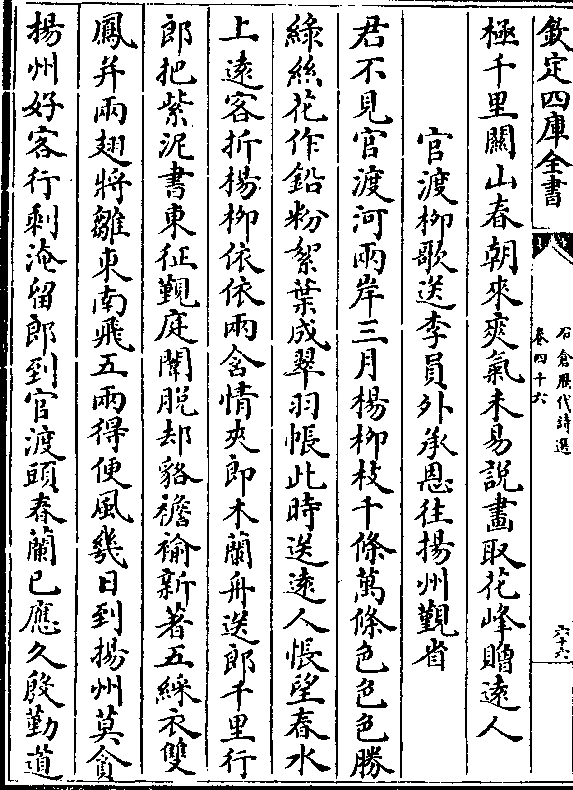 欽定四庫全書
石倉歷代詩選
卷四十六
六十六
極千里關山春朝來爽氣未易說畫取花峰贈遠人
官渡柳歌送李員外承恩往揚州覲省
君不見官渡河兩岸三月楊柳枝千條萬條色色色勝
綠絲花作鉛粉絮葉成翠羽帳此時送遠人悵望春水
上遠客折楊柳依依兩含情夾郎木蘭舟送郎千里行
郎把紫泥書東征覲庭闈脫却貂襜褕新著五綵衣雙
鳳并兩翅將雛東南飛五兩得便風幾日到揚州莫貪
揚州好客行剩淹留郎到官渡頭春蘭已應久殷勤道